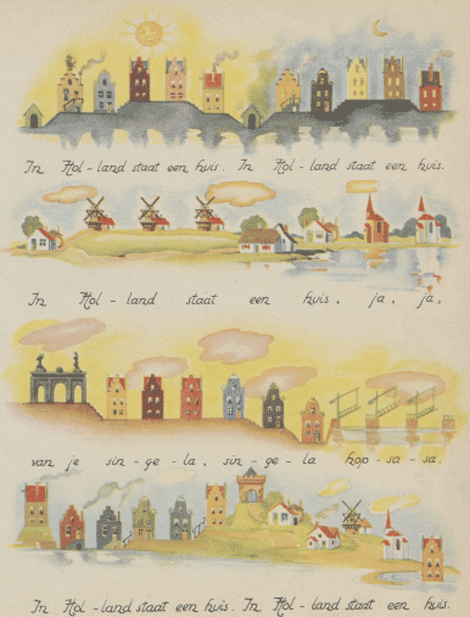 In Hol - land staat een huis. In Hol - land staat een huis.
In Hol - land staat een huis, ja, ja,
van je sin - ge - la, sin - ge - la hop - sa - sa.
In Hol - land staat een huis. In Hol - land staat een huis.